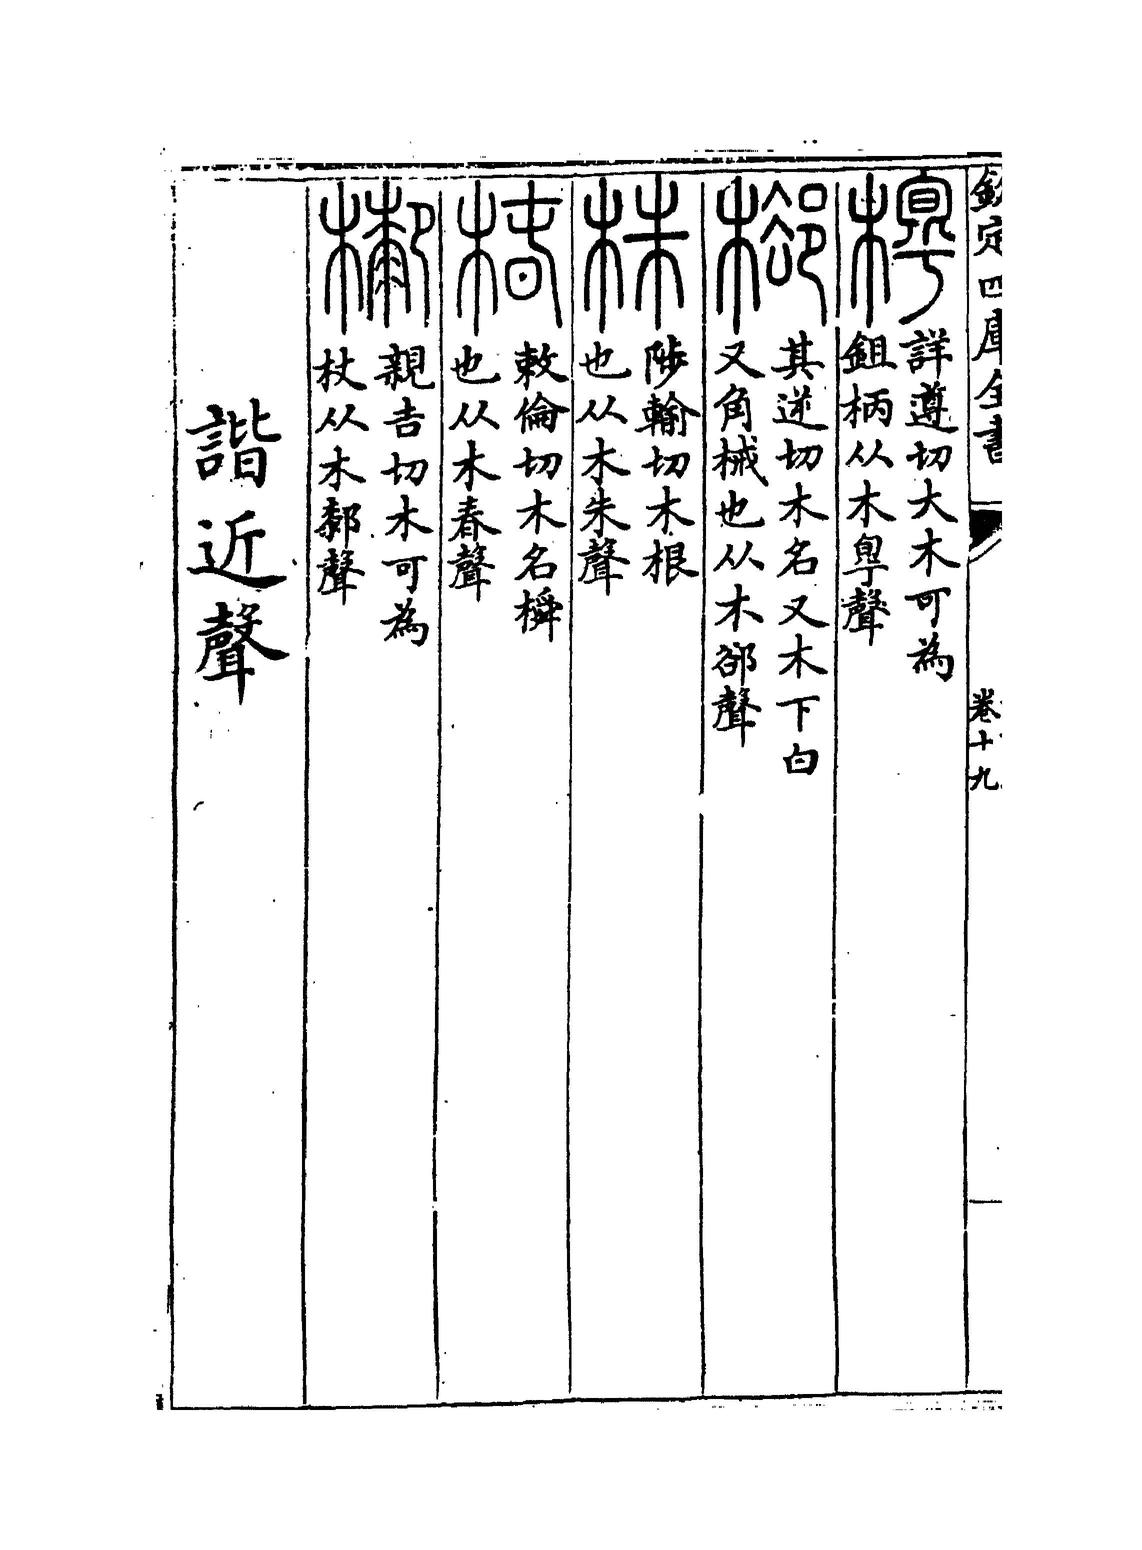 欽定四庫全書
卷十九
詳遵切大木可為
鉏柄从木聲
其逆切木名又木下白
又角械也从木郤聲
株
陟輸切木根
也从木朱聲
椿
敕倫切木名橓
也从木春聲
親吉切木可為
杖从木䣛聲
諧近聲